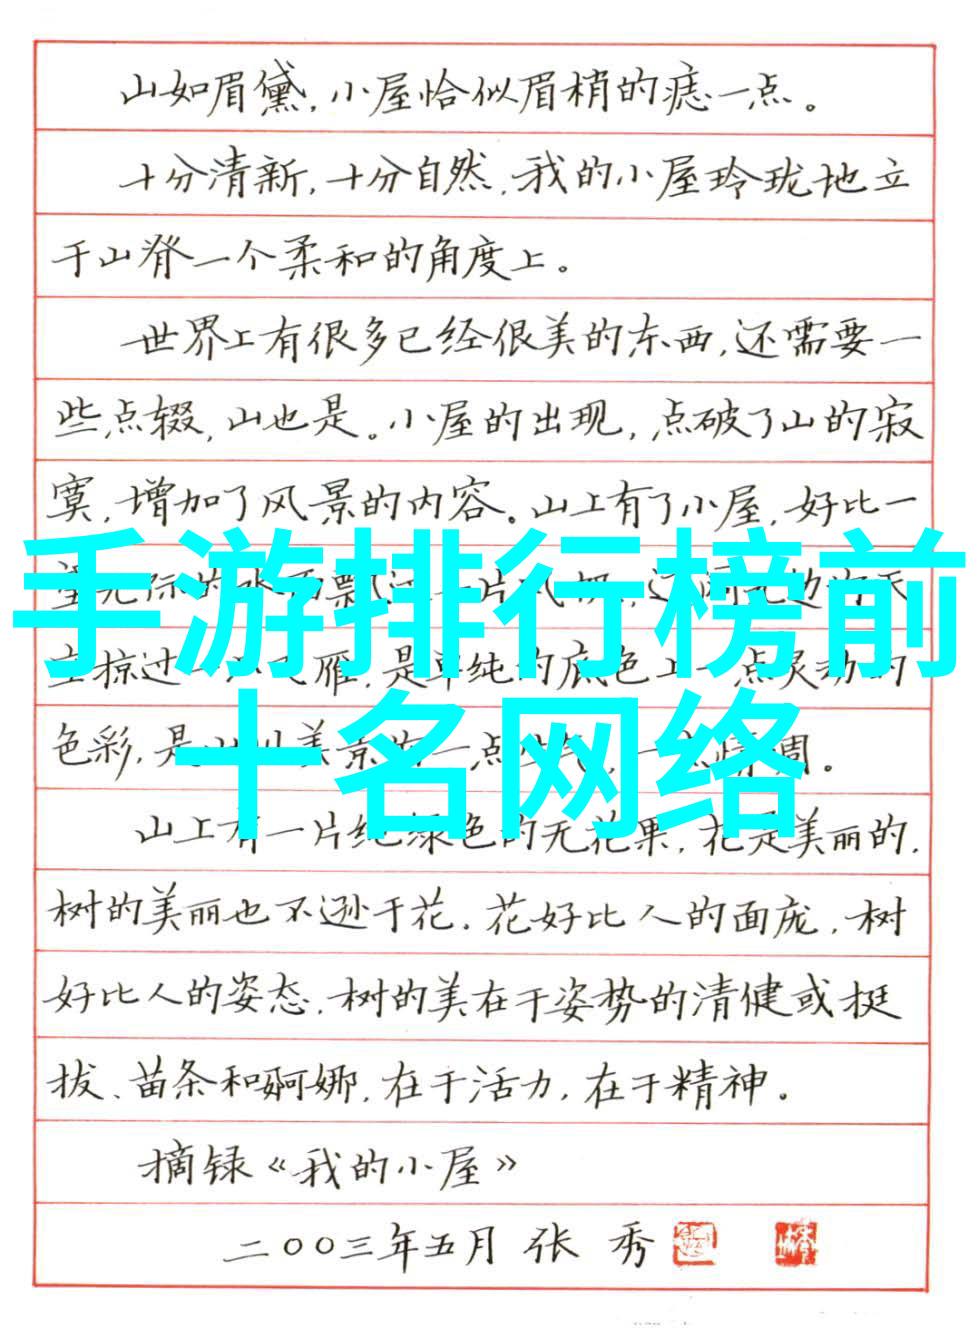 山如眉黛,小屋恰似眉梢的痣一点。
十分清新,十分自然,我的小屋玲珑地立
于山脊一个柔和的角度上。
世界上有很多已经很美的东西,还需要一
些点缀,山也是。小屋的出现,点破了山的寂
寞,增加了风景的内容。山上有了小屋,好比一
手游排行榜前
掠过 雁,是单纯的底色上一点灵动的
十名网络
色彩,是 美景 一点 调。
山上有一片纯绿色的无花果,花是美丽的,
树的美丽也不逊于花。花好比人的面庞,树
好比人的姿态。树的美在于姿势的清健或挺
拔、苗条和婀娜,在于活力,在于精神。
摘录《我的小屋》
二〇〇三年五月 张秀